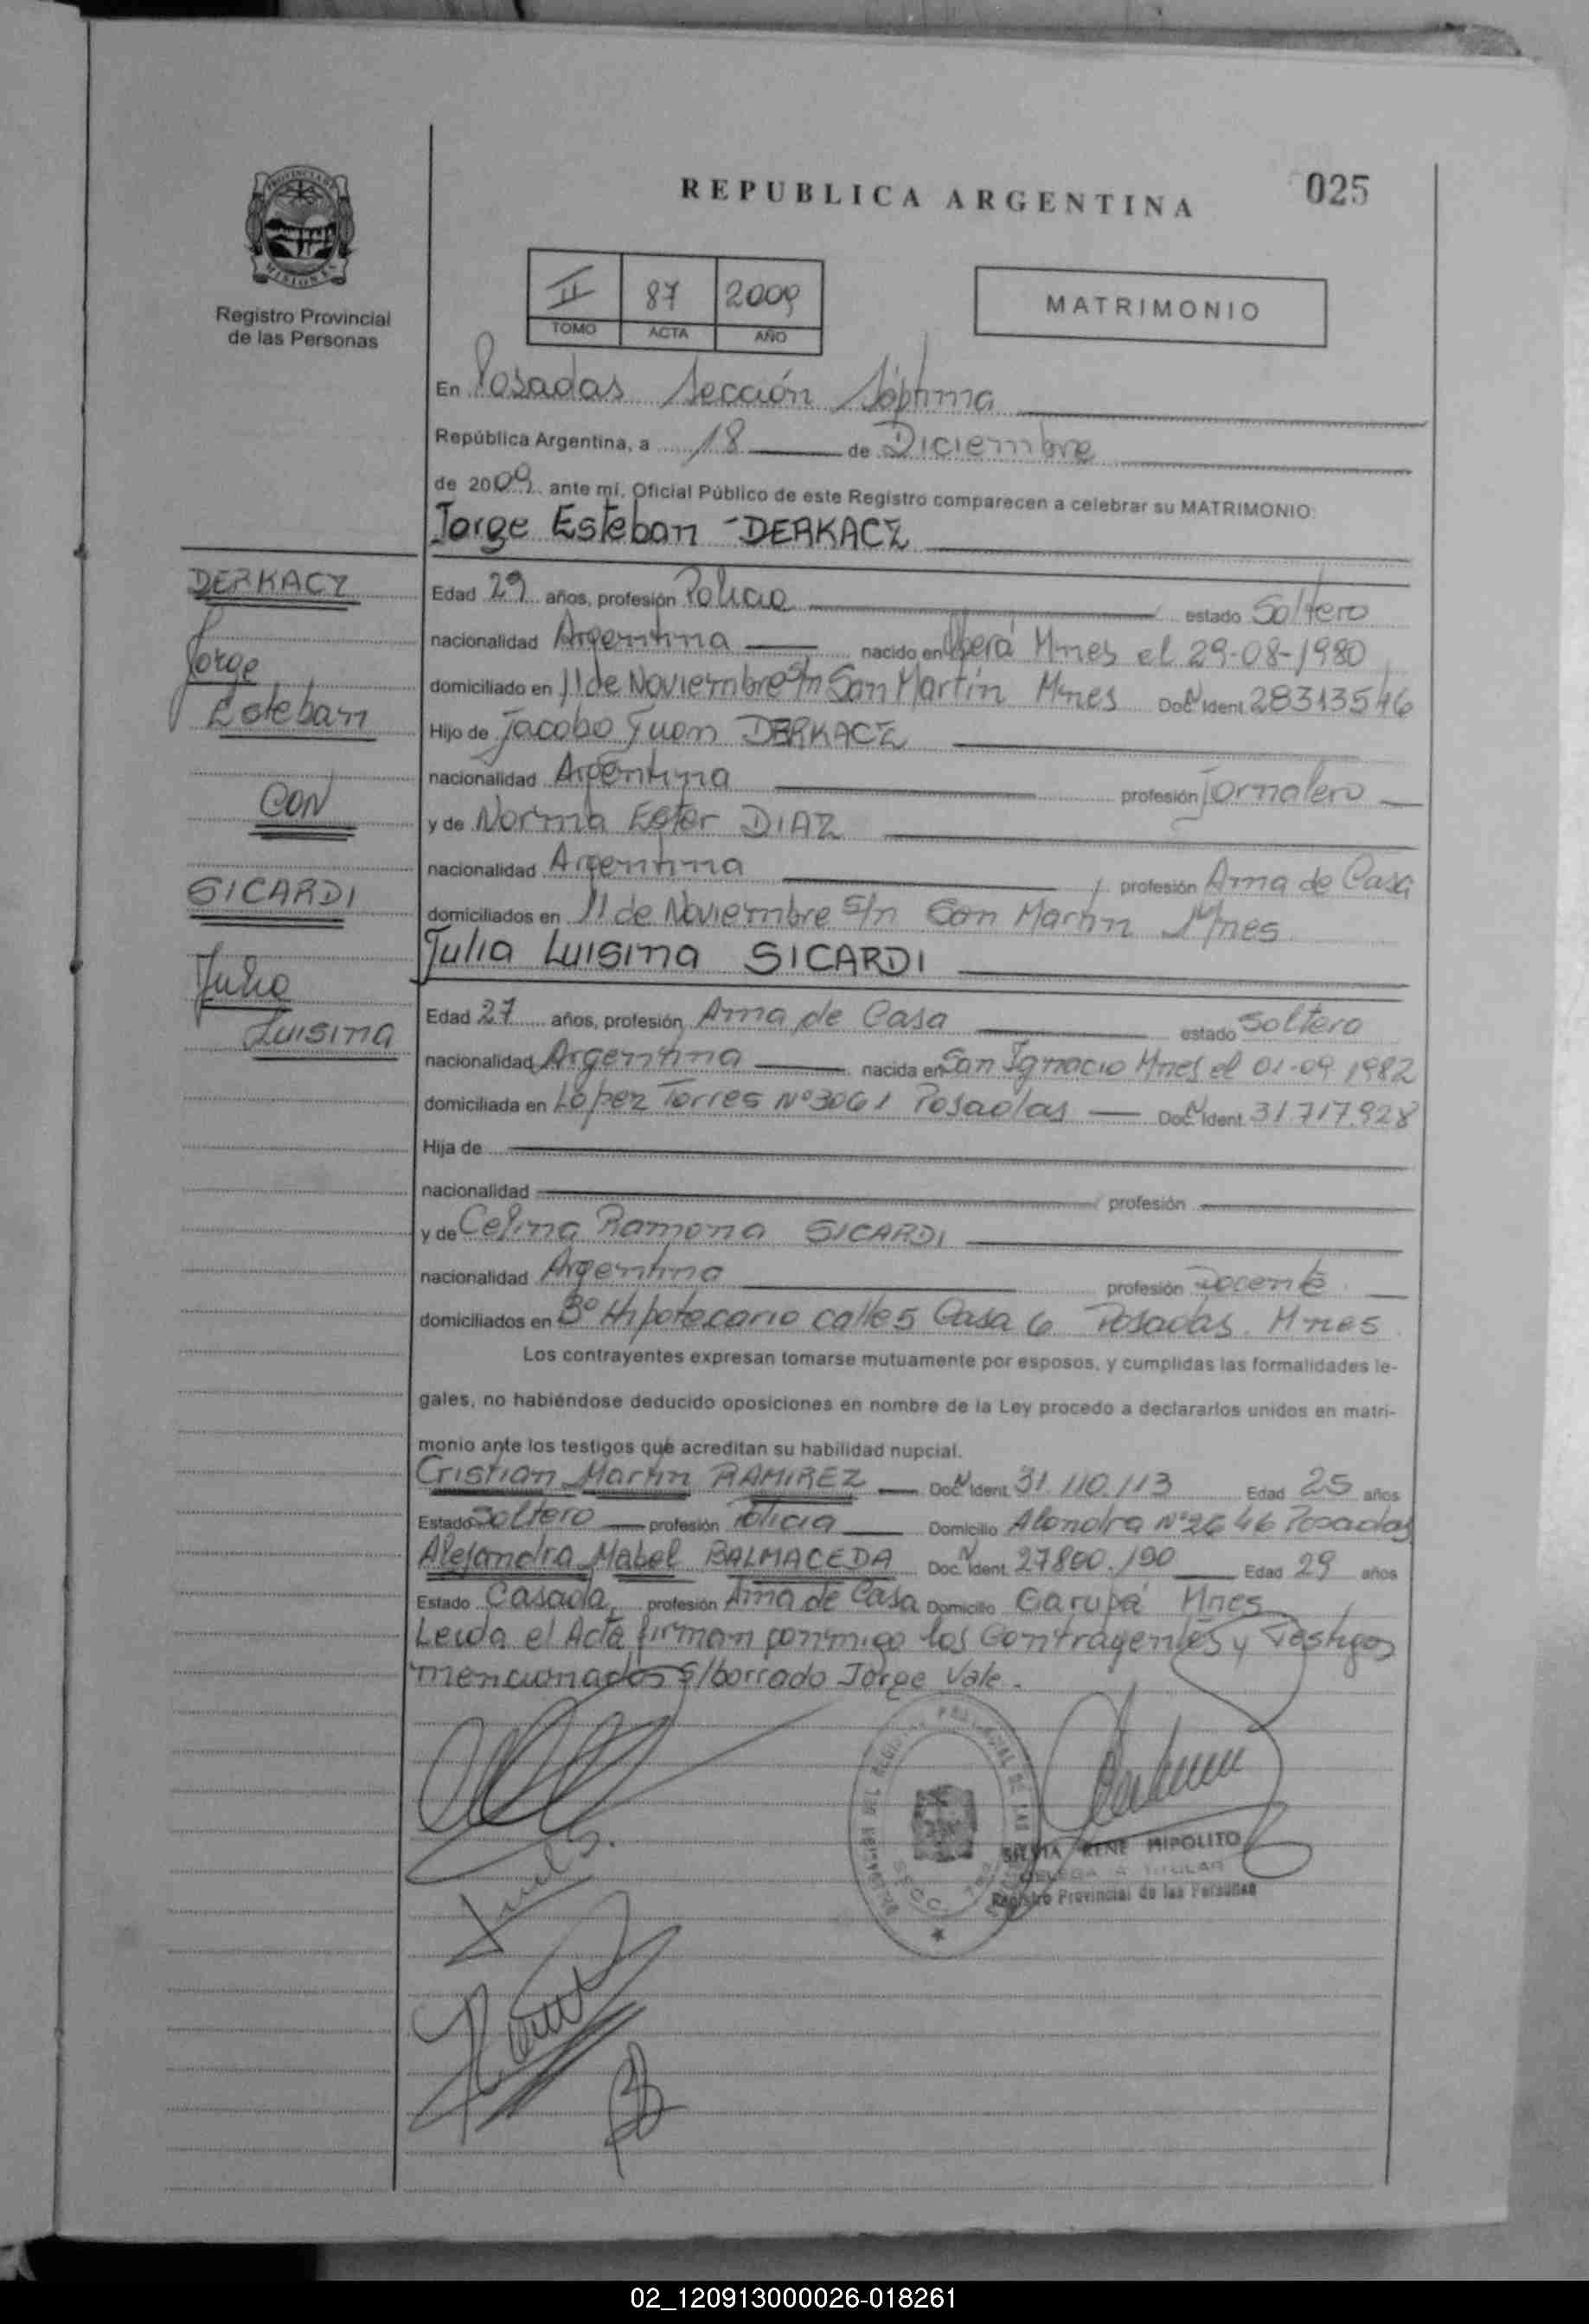 REPUBLICA ARGENTINA
025
PROVINCIA DE
MISIONES
Registro Provincial
de las Personas
II 87 2009
TOMO ACTA AÑO
MATRIMONIO
En Posadas Sección Séptima
República Argentina, a 18 de Diciembre
de 2009 ante mí, Oficial Público de este Registro comparecen a celebrar su MATRIMONIO:
Jorge Esteban DERKACZ
DERKACZ
Jorge
Esteban
CON
SICARDI
Julia
Luisina
Edad 29 años, profesión Policia estado Soltero
nacionalidad Argentina nacido en Oberá Mnes el 29-08-1980
domiciliado en 11 de Noviembre S/n San Martín Mnes Doc. N Ident. 28313546
Hijo de Jacobo Juan DERKACZ
nacionalidad Argentina profesión Jornalero
y de Norma Ester DIAZ
nacionalidad Argentina profesión Ama de Casa
domiciliados en 11 de Noviembre S/n San Martin Mnes
Julia Luisina SICARDI
Edad 27 años, profesión Ama de Casa estado Soltera
nacionalidad Argentina nacida en San Ignacio Mnes el 01-09 1982
domiciliada en López Torres Nº 3061 Posadas Doc. N Ident. 31.717.928
Hija de
nacionalidad profesión
y de Celina Ramona SICARDI
nacionalidad Argentina profesión Docente
domiciliados en Bº Hipotecario calle 5 Casa 6 Posadas. Mnes
Los contrayentes expresan tomarse mutuamente por esposos, y cumplidas las formalidades le-
gales, no habiéndose deducido oposiciones en nombre de la Ley procedo a declararlos unidos en matri-
monio ante los testigos que acreditan su habilidad nupcial.
Cristian Martin RAMIREZ Doc. N Ident. 31.110.113 Edad 25 años
Estado Soltero profesión Policia Domicilio Alondra Nº 2646 Posadas
Alejandra Mabel BALMACEDA Doc. N Ident. 27800.190 Edad 29 años
Estado Casada profesión Ama de Casa Domicilio Garupá Mnes
Leida el Acta firman conmigo los Contrayentes y Testigos
mencionados s/borrado Jorge Vale.
SILVIA RENE HIPOLITO
DELEGADA TITULAR
Registro Provincial de las Personas
02_120913000026-018261